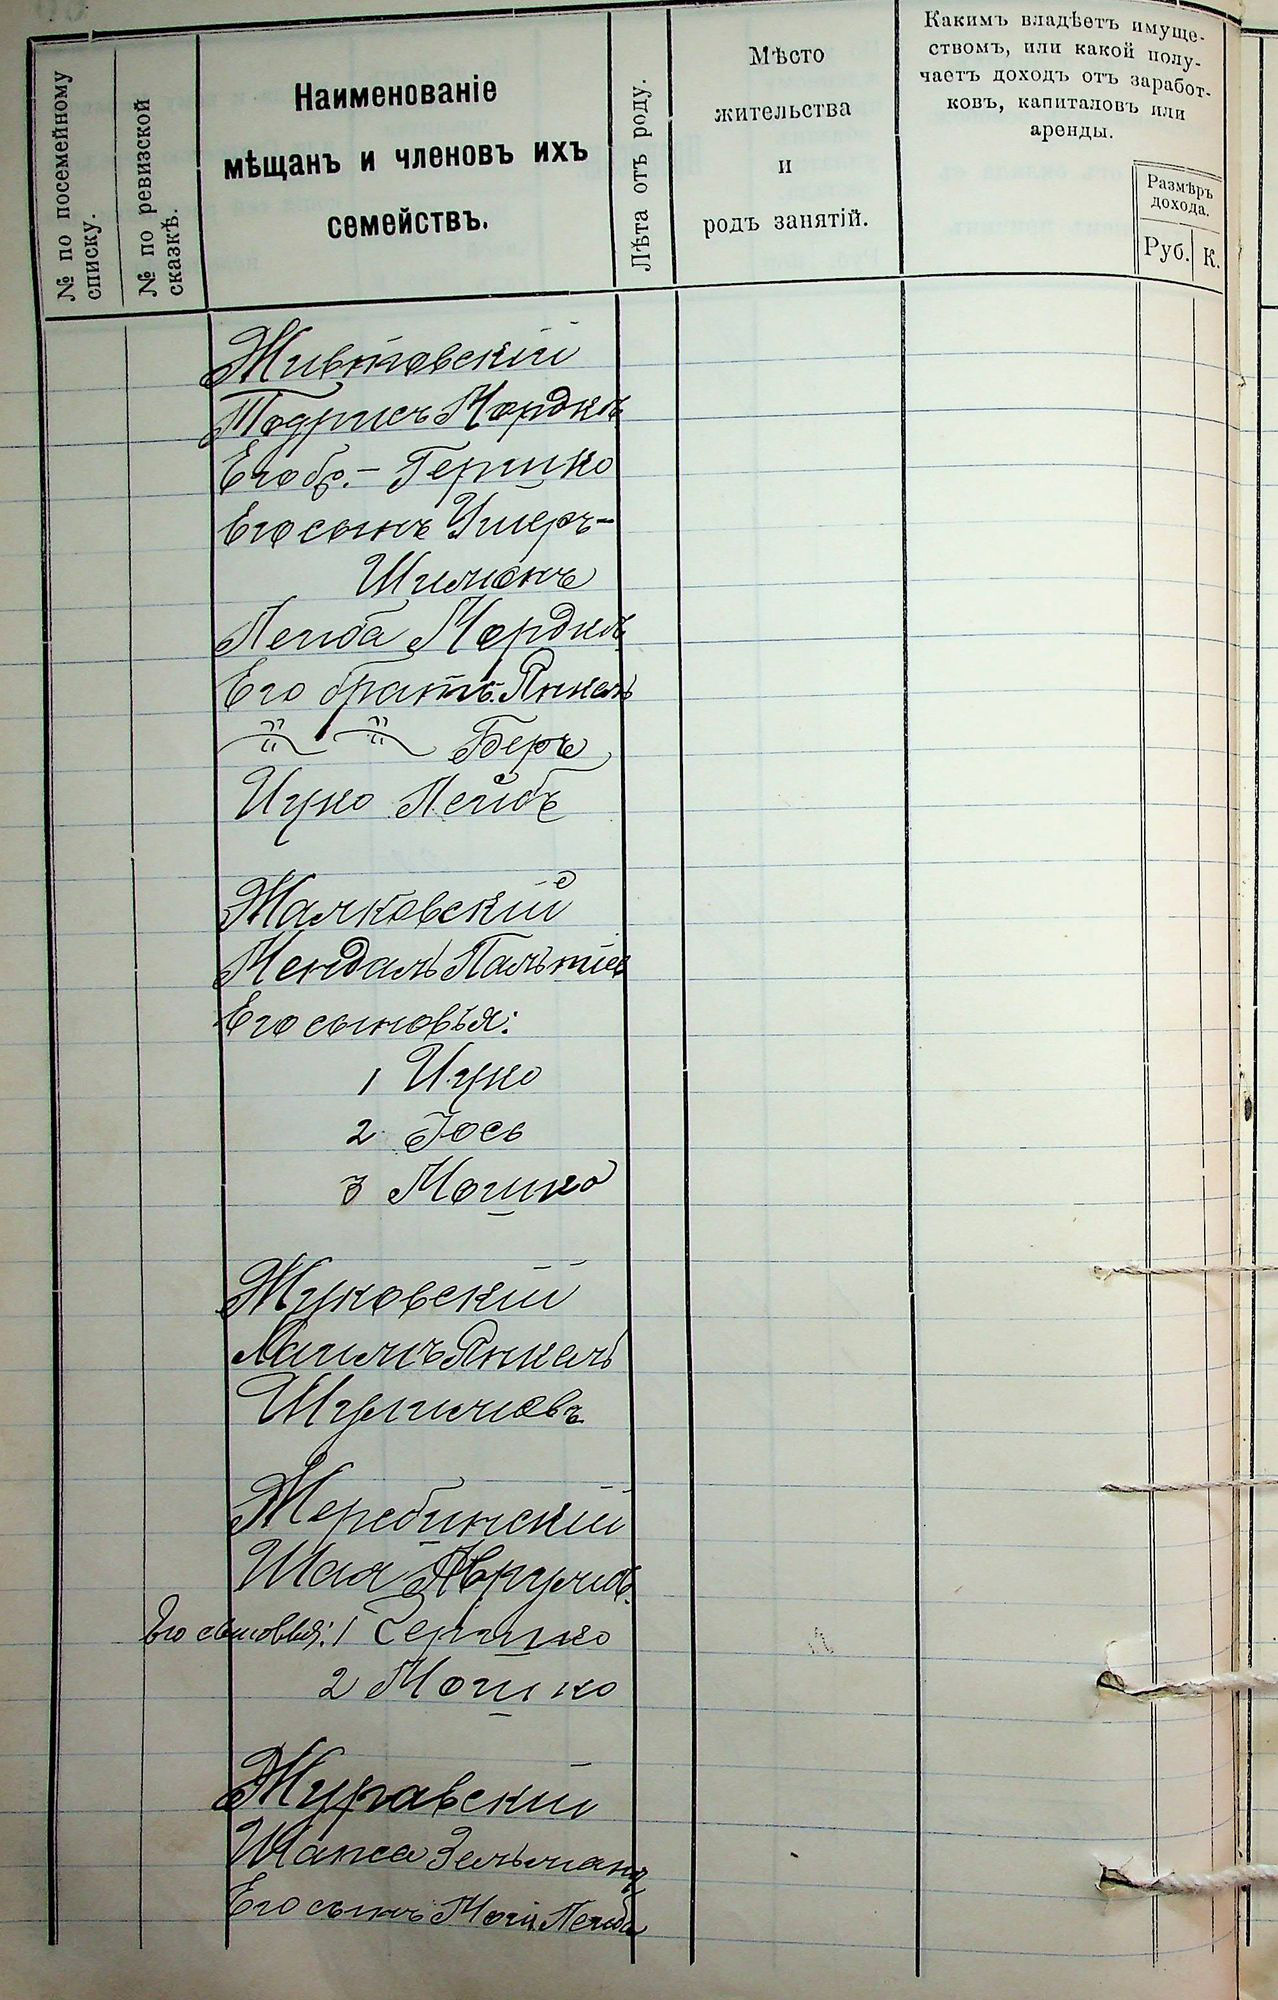 № по посемейному
списку.
№ по ревизской
сказкѣ.
Наименованіе
мѣщанъ и членовъ ихъ
семействъ.
Лѣта отъ роду.
Мѣсто
жительства
и
родъ занятій.
Какимъ владѣетъ имуще-
ствомъ, или какой полу-
чаетъ доходъ отъ заработ-
ковъ, капиталовъ или
аренды.
Размѣръ
дохода.
Руб. К.
Живтовскій
Тодрисъ Мордковъ
Его бр. – Гершко
Его сынъ Ушеръ-
Шимонъ
Лейба Мордковъ
Его братъ Янкель
" " Беръ
Ицко Лейбъ
Жалковскій
Мендаль Пальтіев
Его сыновья:
1 Ицко
2 Іось
3 Мошко
Жуковскій
Хаимъ Янкель
Шулимовъ
Жеребинскій
Шая Аврумов.
Его сыновья: 1 Гершко
2 Мошко
Журавскій
Шапса Зельман
Его сынъ Мош. Лейба